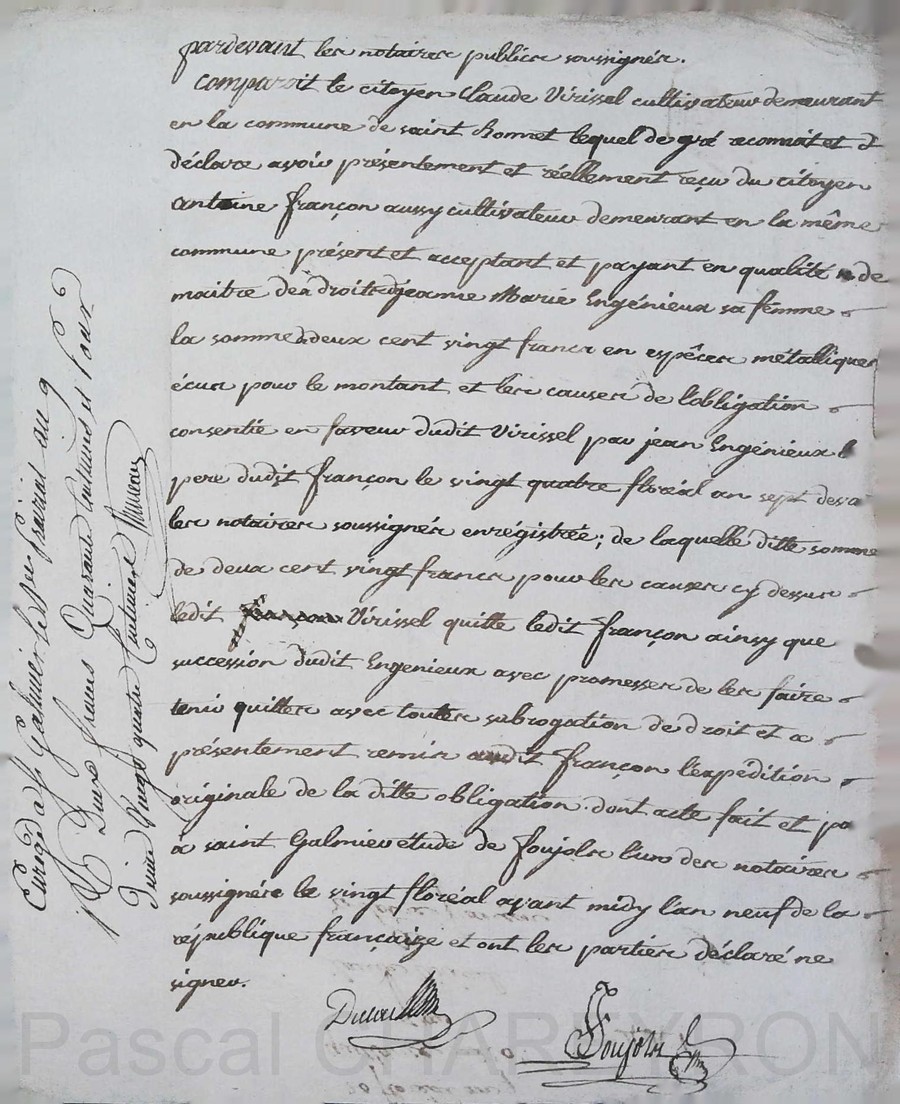 pardevant les notaires publics soussignés.
comparoit le citoyen Claude Virissel cultivateur demeurant
en la commune de saint bonnet lequel de gré reconnoit et d
déclare avoir présentement et réellement reçu du citoyen
antoine françon aussy cultivateur demeurant en la même
commune présent et acceptant et payant en qualité de
maitre des droits de jeanne Marie Engénieux sa femme
la somme de deux cent vingt francs en espêces métalliques
écus pour le montant et les causes de l'obligation
consentie en faveur dudit Virissel par jean Engénieux b
pere dudit françon le vingt quatre floréal an sept deva
les notaires soussignés enregistrée; de laquelle ditte somme
de deux cent vingt francs pour les causes cy dessus
ledit françon Virissel quitte ledit françon ainsy que
succession dudit Engenieux avec promesses de les faire
tenir quittes avec toutes subrogation de droit et a
présentement remis audit françon l'expédition
originale de la ditte obligation. dont acte fait et pa
a saint Galmier étude de foujols l'un des notaires
soussignés le vingt floréal avant midy l'an neuf de la
république françaize et ont les parties déclaré ne
signer.
Foujols
Enrg. à St Galmier le six prairial an 9
Reçu Deux francs Quarante Centimes et Pour
dixième Vingt quatre Centimes
Pascal CHAREYRON